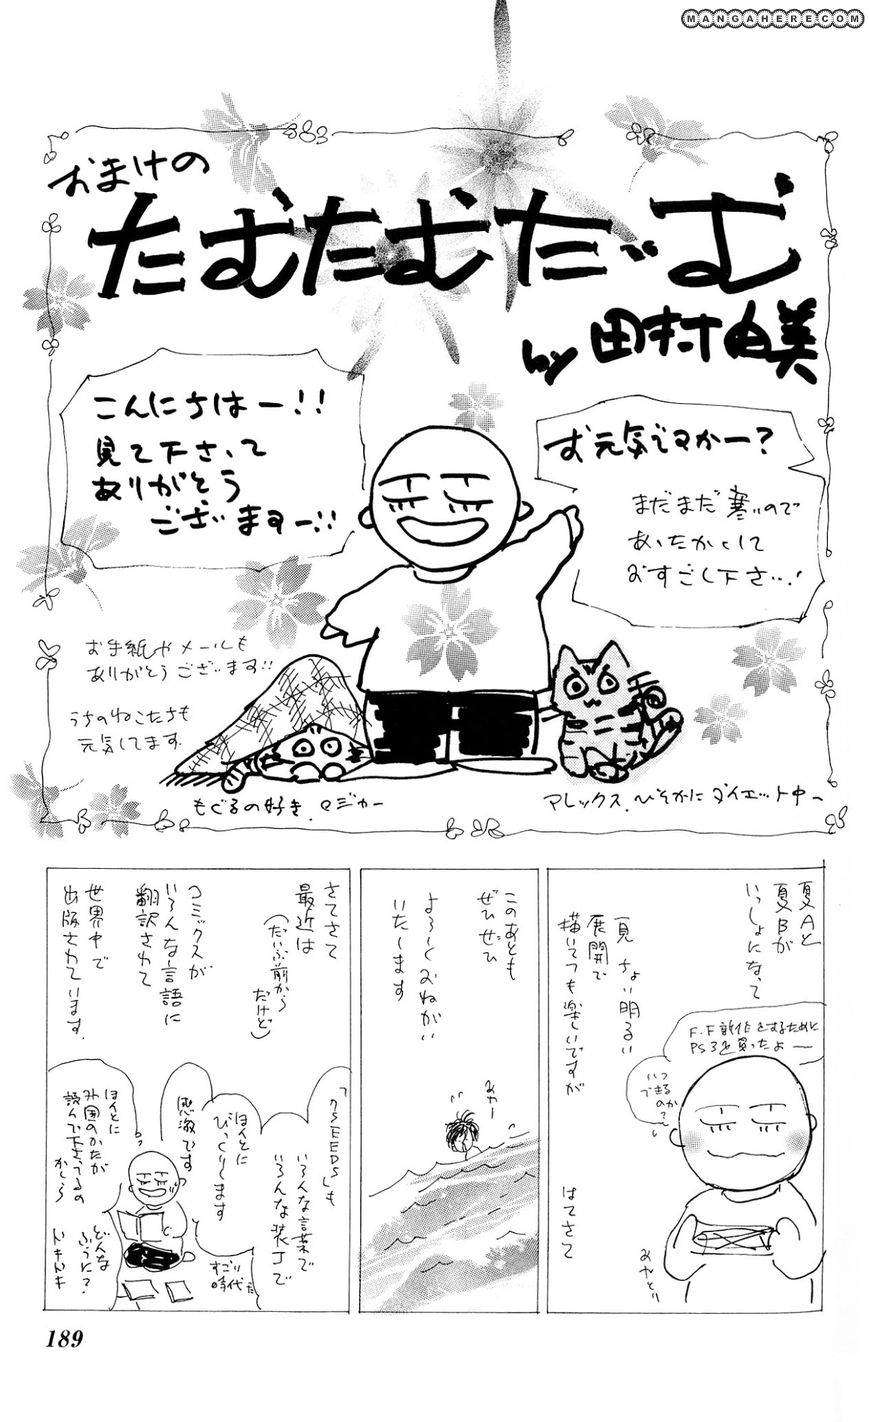 MANGAHERE.COM
おまけの
たむたむたいむ
by 田村由美
こんにちはー!!
見て下さって
ありがとう
ございますー!!
お元気ですかー?
まだまだ寒いので
あったかくして
おすごし下さい!
お手紙やメールも
ありがとうございます!!
うちのねこたちも
元気してます
もぐるの好き、マジカー
アレックス、ひそかにダイエット中ー
夏Aと
夏Bが
いっしょになって
一見ちょい明るい
展開で
描いてても楽しいですが
はてさて
F.F新作をするために
PS3を買ったよー
いつ
できるのか?
あやとり
このあとも
ぜひぜひ
よろしくおねがい
いたします
みゃー
さてさて
最近は
(だいぶ前から
だけど)
コミックスが
いろんな言語に
翻訳されて
世界中で
出版されています。
「7SEEDS」も
いろんな言葉で
いろんな装丁で
ほんとに
びっくりします
感激です
すごい
時代だ
ほんとに
外国のかたが
読んで下さってるの
かしら
どんな
ふうに?
ドキドキ
189